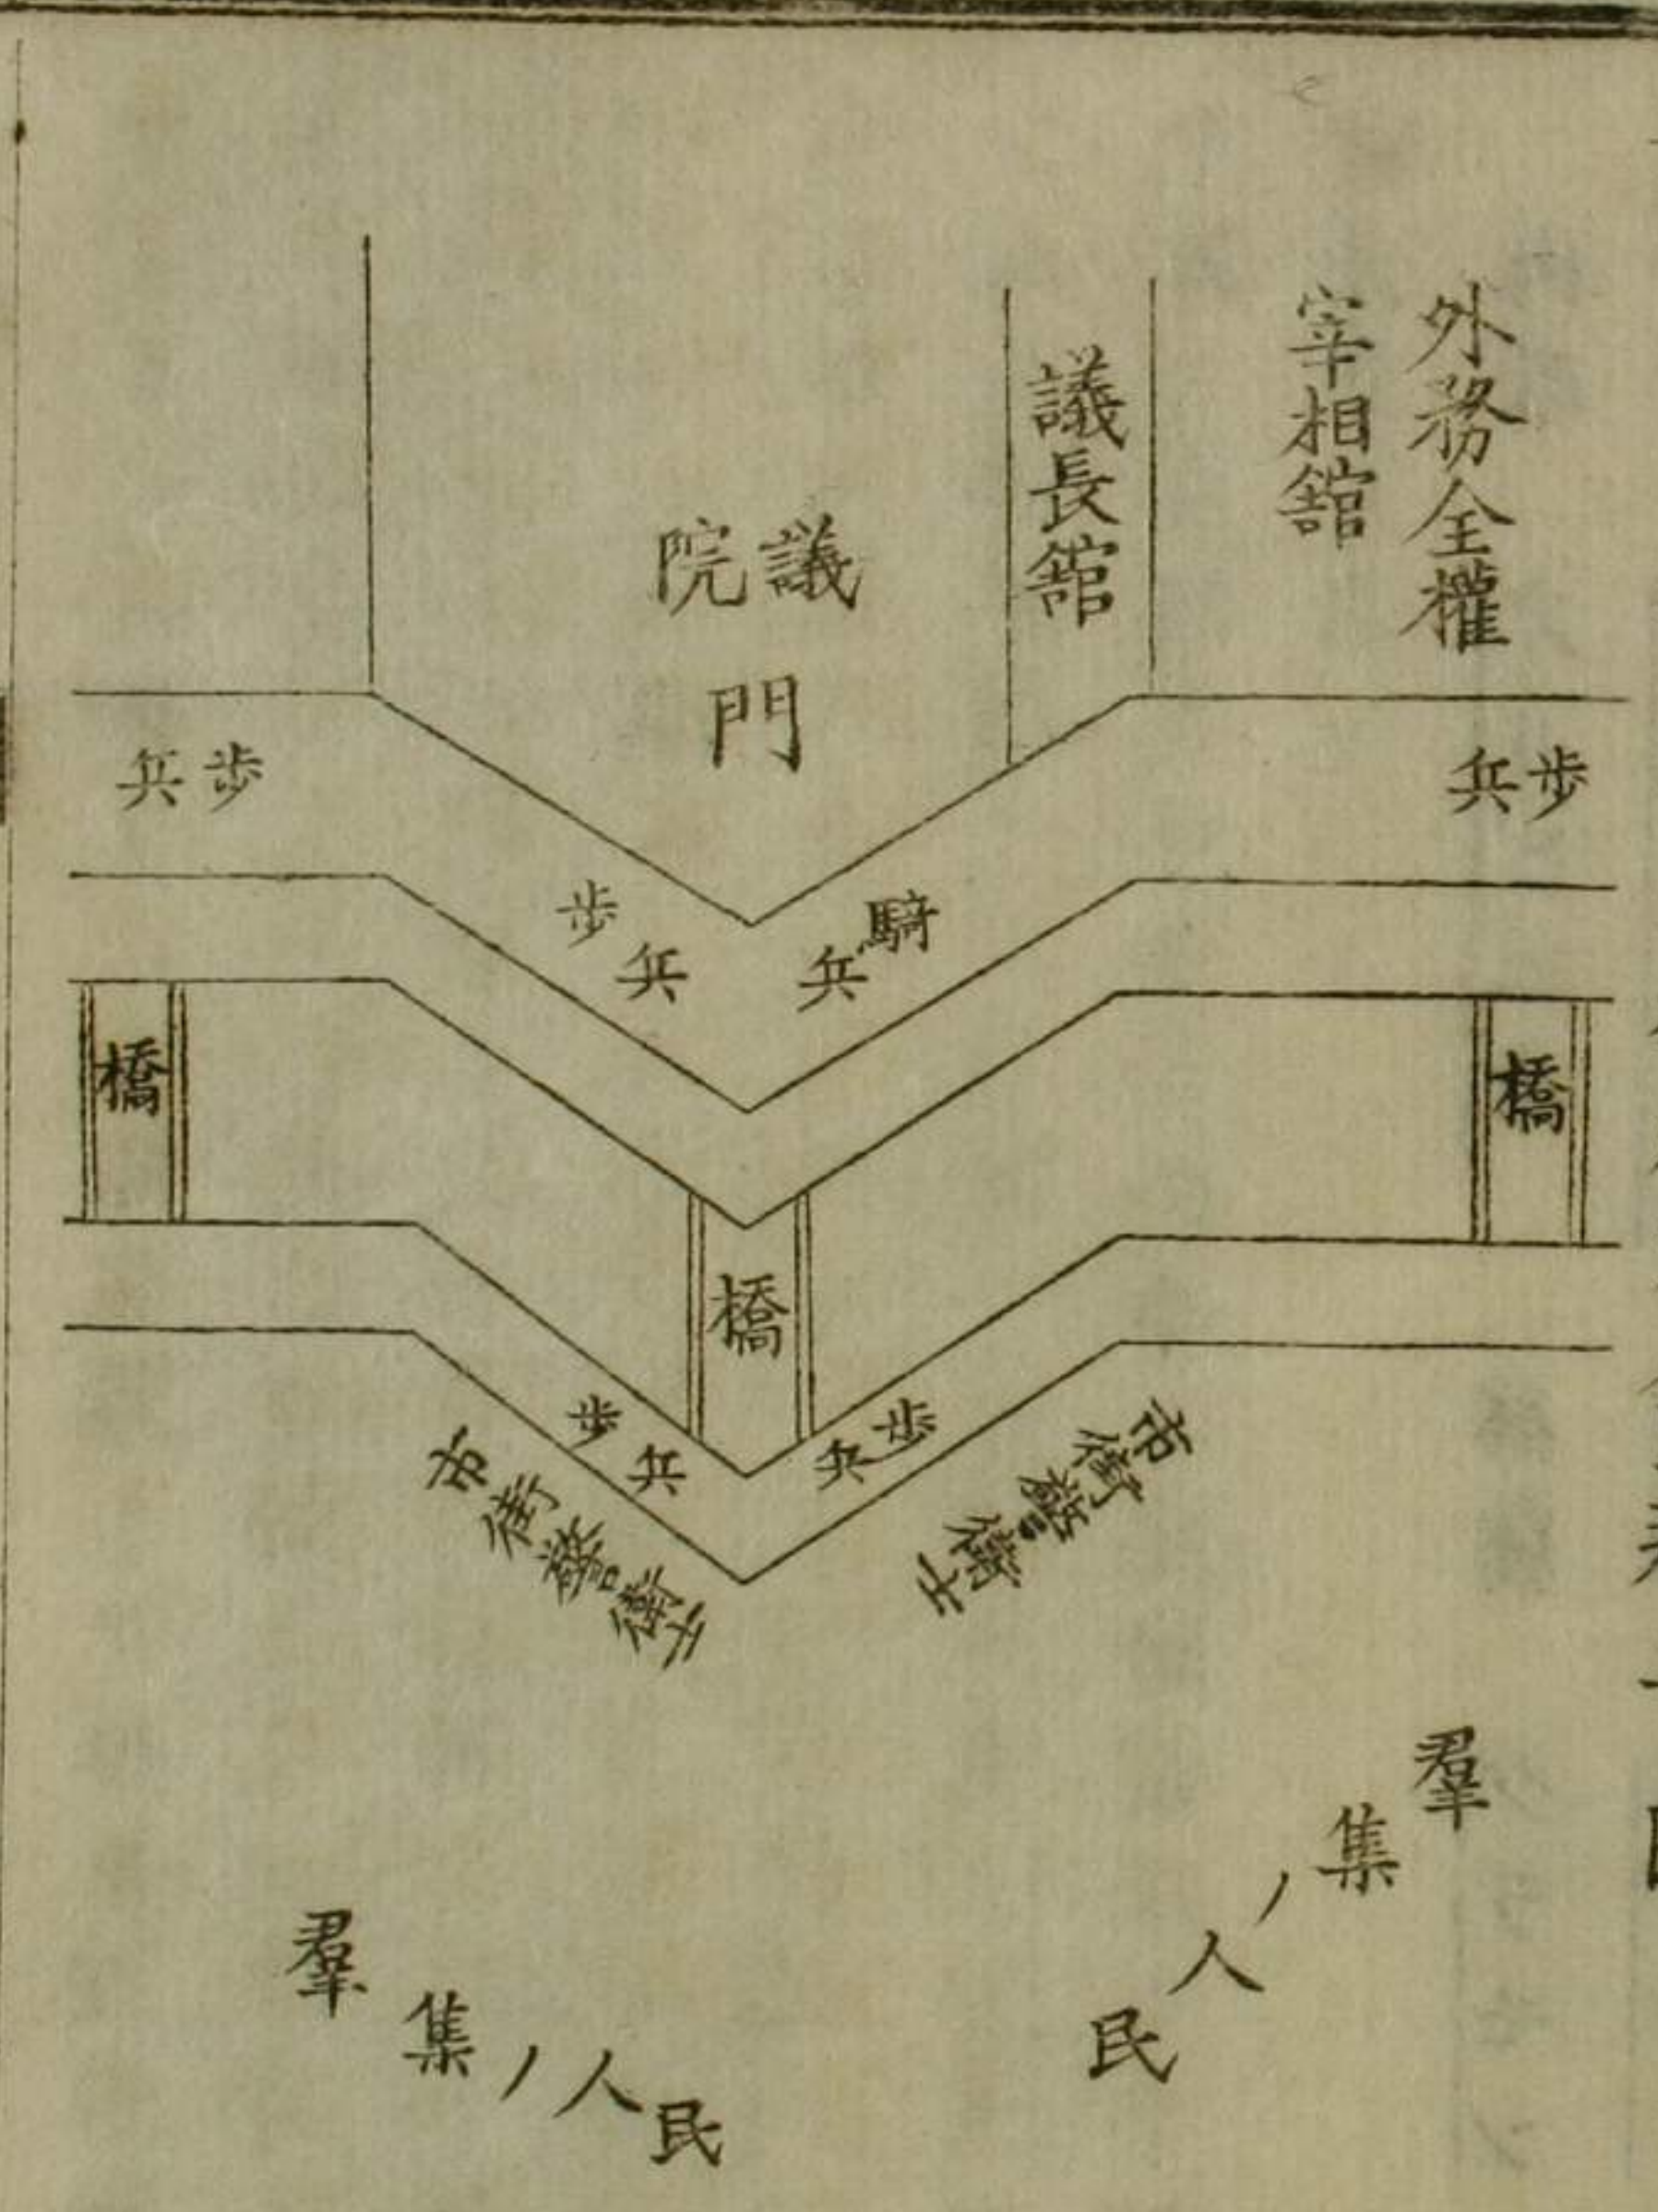 外務全權
宰相舘
議長舘
議院
門
歩兵
騎兵
歩兵
歩兵
橋
橋
橋
歩兵
歩兵
市街警衛士
市街警衛士
羣集ノ人民
羣集ノ人民